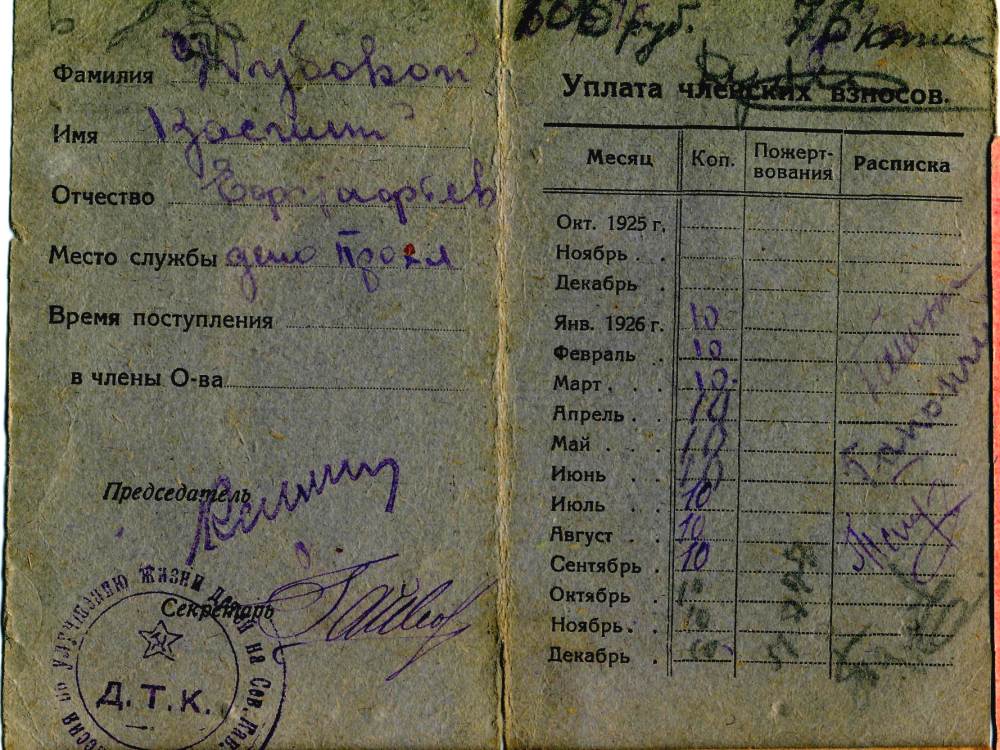 Фамилия Дубовой
Имя Василий
Отчество
Место службы депо
Время поступления
в члены О-ва
Председатель
Секретарь
по улучшению жизни детей на Сев. Кав.
Д.Т.К.
606 руб. 76 коп
Уплата членских взносов.
Месяц Коп. Пожерт-вования Расписка
Окт. 1925 г.
Ноябрь . .
Декабрь .
Янв. 1926 г. 10
Февраль . 10
Март . . . 10
Апрель . . 10
Май . . . 10
Июнь . . 10
Июль . . 10
Август . . 10
Сентябрь . 10
Октябрь . . 10
Ноябрь . . 10
Декабрь .